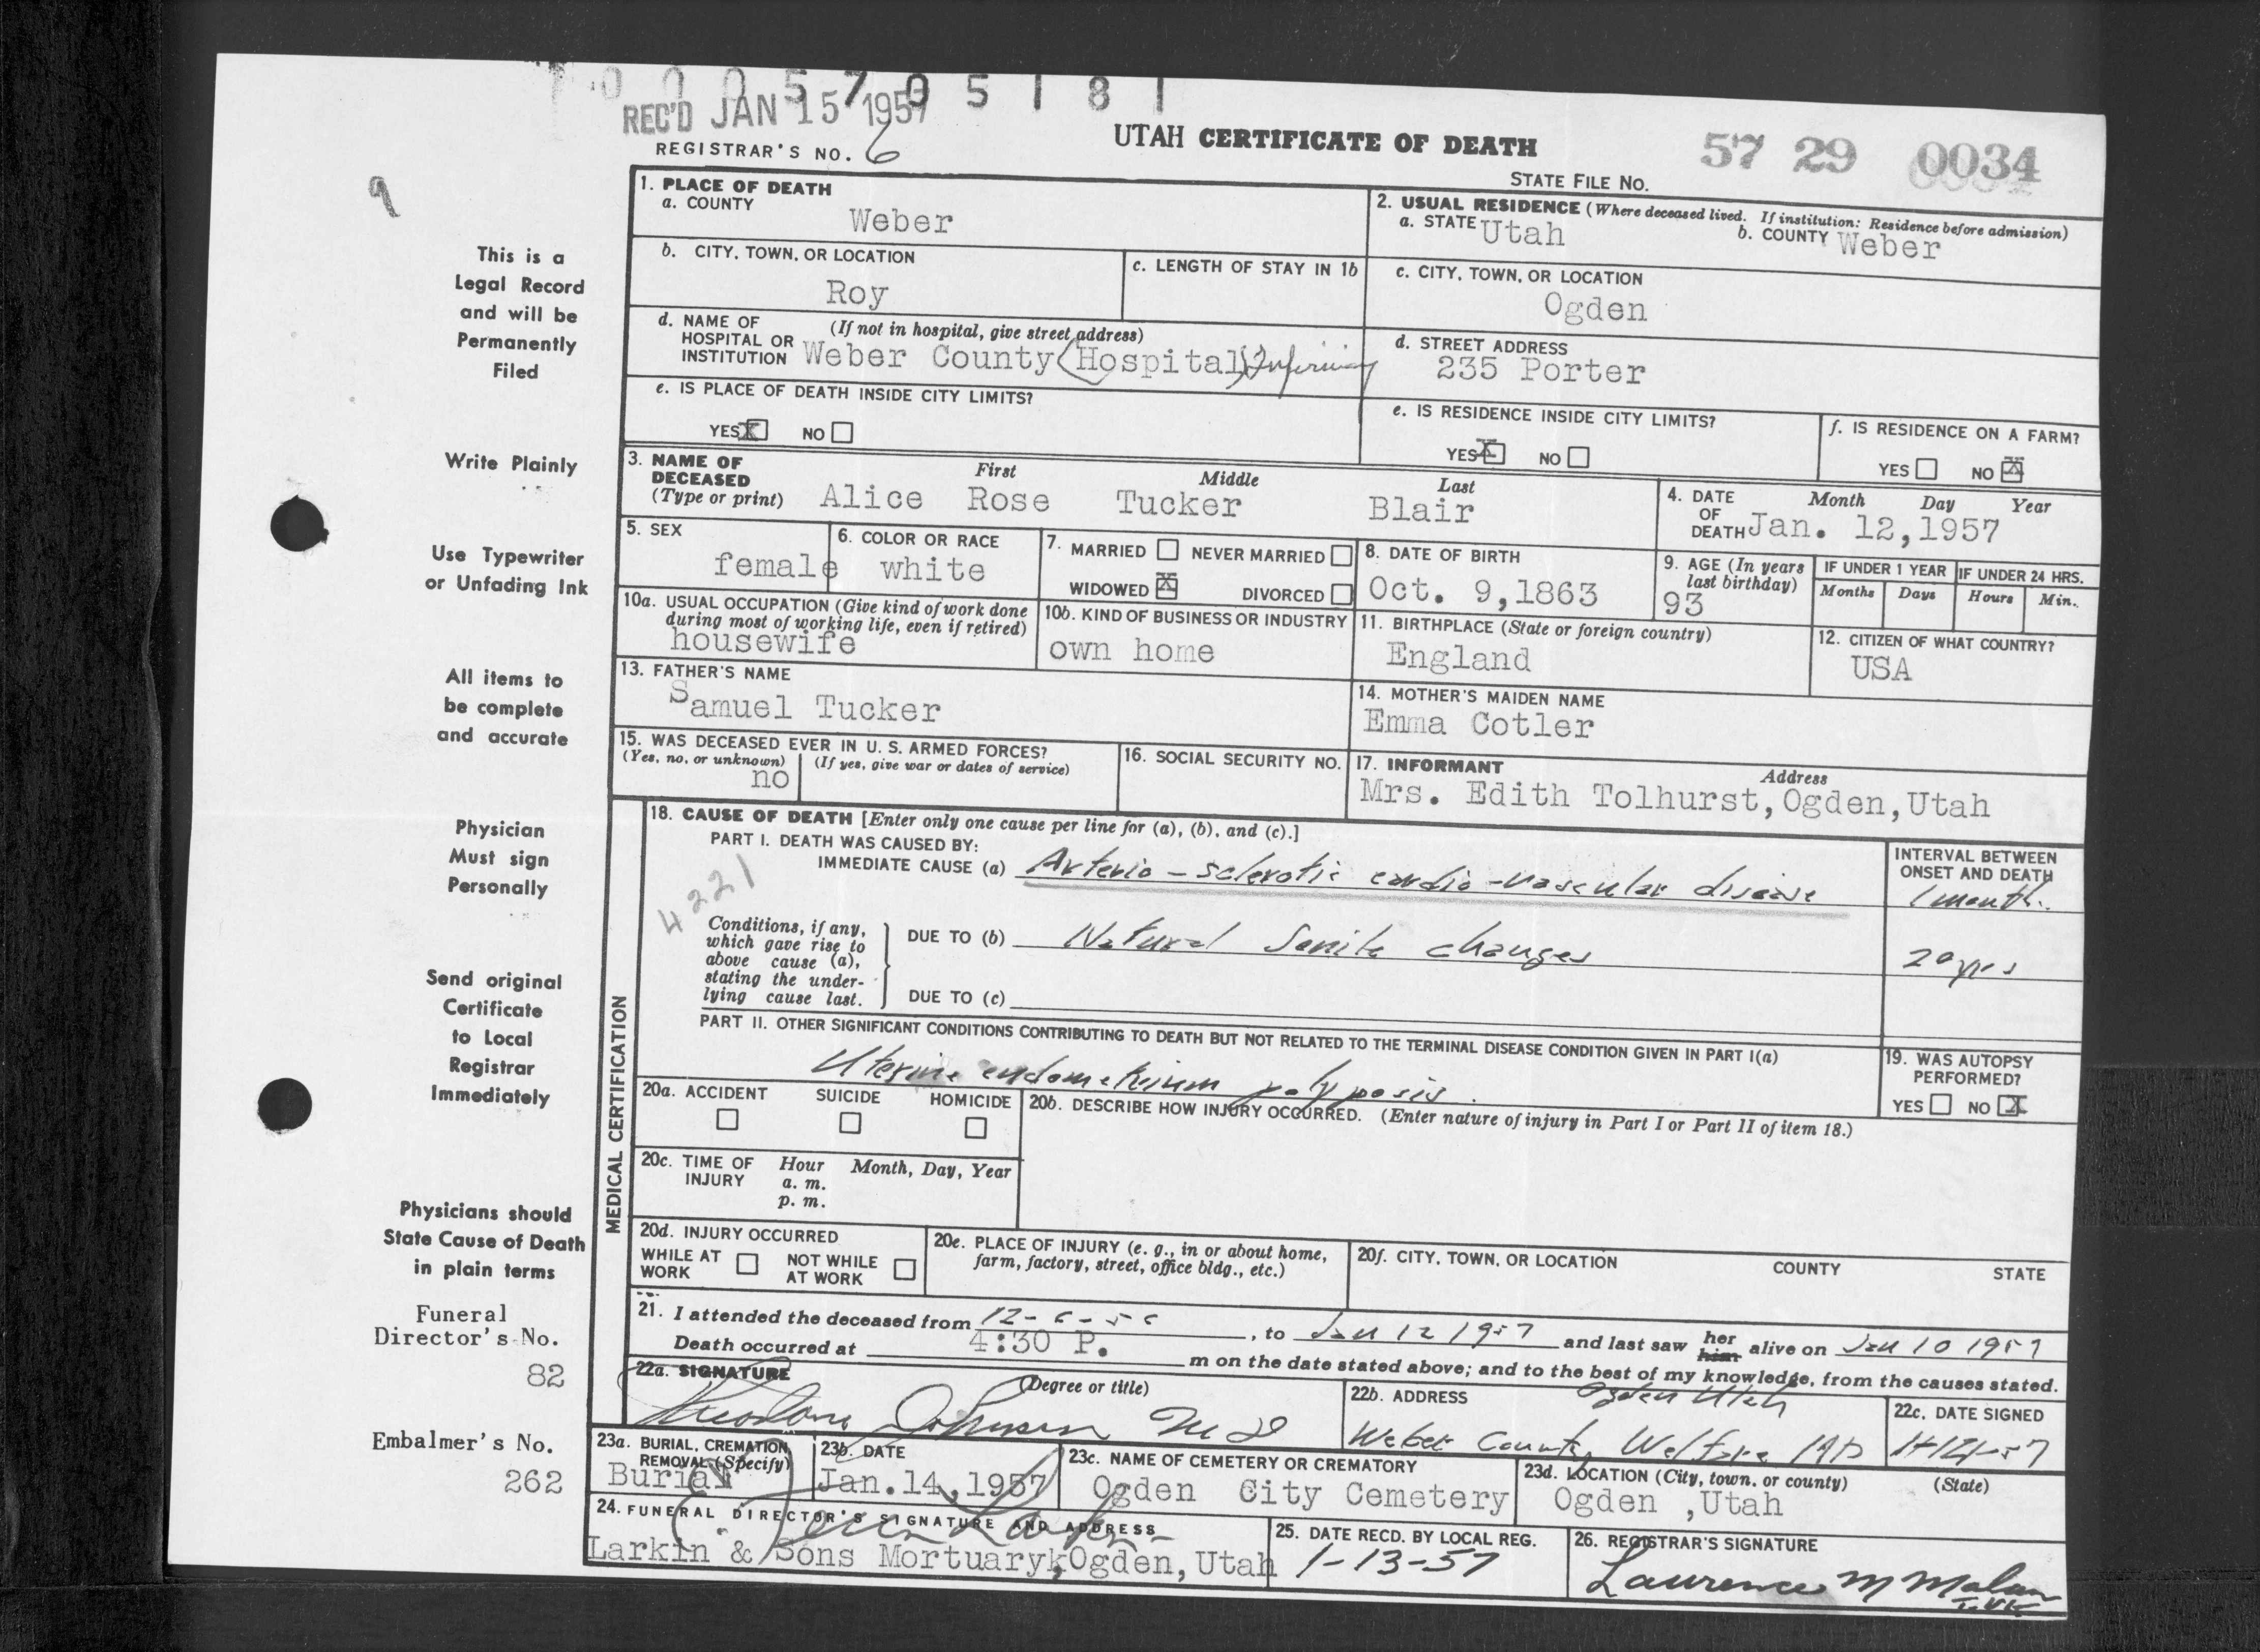 0005705181
REC'D JAN 15 1957
REGISTRAR'S NO. 6
UTAH CERTIFICATE OF DEATH
57 29 0034
STATE FILE NO.
9
This is a
Legal Record
and will be
Permanently
Filed
Write Plainly
Use Typewriter
or Unfading Ink
All items to
be complete
and accurate
Physician
Must sign
Personally
Send original
Certificate
to Local
Registrar
Immediately
Physicians should
State Cause of Death
in plain terms
Funeral
Director's No.
82
Embalmer's No.
262
1. PLACE OF DEATH
a. COUNTY
Weber
2. USUAL RESIDENCE (Where deceased lived. If institution: Residence before admission)
a. STATE Utah b. COUNTY Weber
b. CITY, TOWN, OR LOCATION
Roy
c. LENGTH OF STAY IN 1b
c. CITY, TOWN, OR LOCATION
Ogden
d. NAME OF (If not in hospital, give street address)
HOSPITAL OR
INSTITUTION Weber County (Hospital)
d. STREET ADDRESS
235 Porter
e. IS PLACE OF DEATH INSIDE CITY LIMITS?
YES X NO
e. IS RESIDENCE INSIDE CITY LIMITS?
YES X NO
f. IS RESIDENCE ON A FARM?
YES NO X
3. NAME OF DECEASED (Type or print)
First Middle Last
Alice Rose Tucker Blair
4. DATE OF DEATH Month Day Year
Jan. 12,1957
5. SEX
female
6. COLOR OR RACE
white
7. MARRIED NEVER MARRIED
WIDOWED X DIVORCED
8. DATE OF BIRTH
Oct. 9,1863
9. AGE (In years last birthday)
93
IF UNDER 1 YEAR IF UNDER 24 HRS.
Months Days Hours Min.
10a. USUAL OCCUPATION (Give kind of work done
during most of working life, even if retired)
housewife
10b. KIND OF BUSINESS OR INDUSTRY
own home
11. BIRTHPLACE (State or foreign country)
England
12. CITIZEN OF WHAT COUNTRY?
USA
13. FATHER'S NAME
Samuel Tucker
14. MOTHER'S MAIDEN NAME
Emma Cotler
15. WAS DECEASED EVER IN U. S. ARMED FORCES?
(Yes, no, or unknown) (If yes, give war or dates of service)
no
16. SOCIAL SECURITY NO.
17. INFORMANT Address
Mrs. Edith Tolhurst,Ogden,Utah
MEDICAL CERTIFICATION
18. CAUSE OF DEATH [Enter only one cause per line for (a), (b), and (c).]
PART I. DEATH WAS CAUSED BY:
IMMEDIATE CAUSE (a) Arterio-sclerotic cardio-vascular disease
INTERVAL BETWEEN
ONSET AND DEATH
1 month.
4221
Conditions, if any,
which gave rise to
above cause (a),
stating the under-
lying cause last.
DUE TO (b) Natural Senile changes
20 yrs
DUE TO (c)
PART II. OTHER SIGNIFICANT CONDITIONS CONTRIBUTING TO DEATH BUT NOT RELATED TO THE TERMINAL DISEASE CONDITION GIVEN IN PART I(a)
Uterine endometrium polyposis.
19. WAS AUTOPSY
PERFORMED?
YES NO X
20a. ACCIDENT SUICIDE HOMICIDE
20b. DESCRIBE HOW INJURY OCCURRED. (Enter nature of injury in Part I or Part II of item 18.)
20c. TIME OF INJURY Hour Month, Day, Year
a. m.
p. m.
20d. INJURY OCCURRED
WHILE AT WORK NOT WHILE AT WORK
20e. PLACE OF INJURY (e. g., in or about home,
farm, factory, street, office bldg., etc.)
20f. CITY, TOWN, OR LOCATION COUNTY STATE
21. I attended the deceased from 12-6-56, to Jan 12 1957 and last saw her him alive on Jan 10 1957
Death occurred at 4:30 P. m on the date stated above; and to the best of my knowledge, from the causes stated.
22a. SIGNATURE (Degree or title)
Theodore Johnson M D
22b. ADDRESS
Ogden Utah
Weber County Welfare
22c. DATE SIGNED
23a. BURIAL, CREMATION,
REMOVAL (Specify)
Burial
23b. DATE
Jan.14,1957
23c. NAME OF CEMETERY OR CREMATORY
Ogden City Cemetery
23d. LOCATION (City, town, or county) (State)
Ogden ,Utah
24. FUNERAL DIRECTOR'S SIGNATURE AND ADDRESS
Larkin & Sons Mortuary,Ogden,Utah
25. DATE RECD. BY LOCAL REG.
1-13-57
26. REGISTRAR'S SIGNATURE
Laurence M Malan